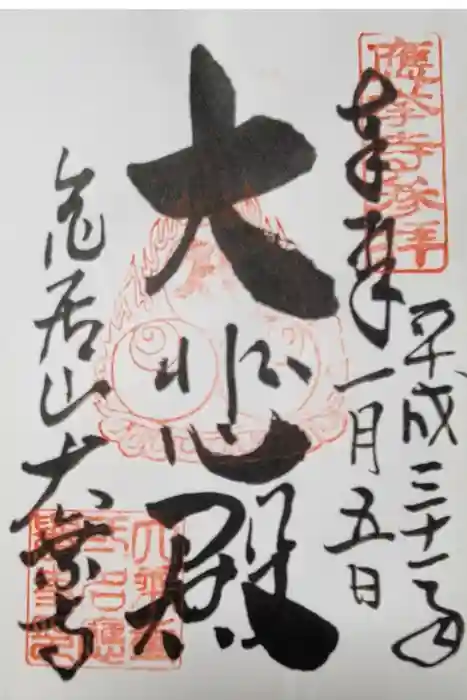 應擧寺參拜
奉拜
平成三十一年
一月五日
大悲殿
亀居山大乗寺